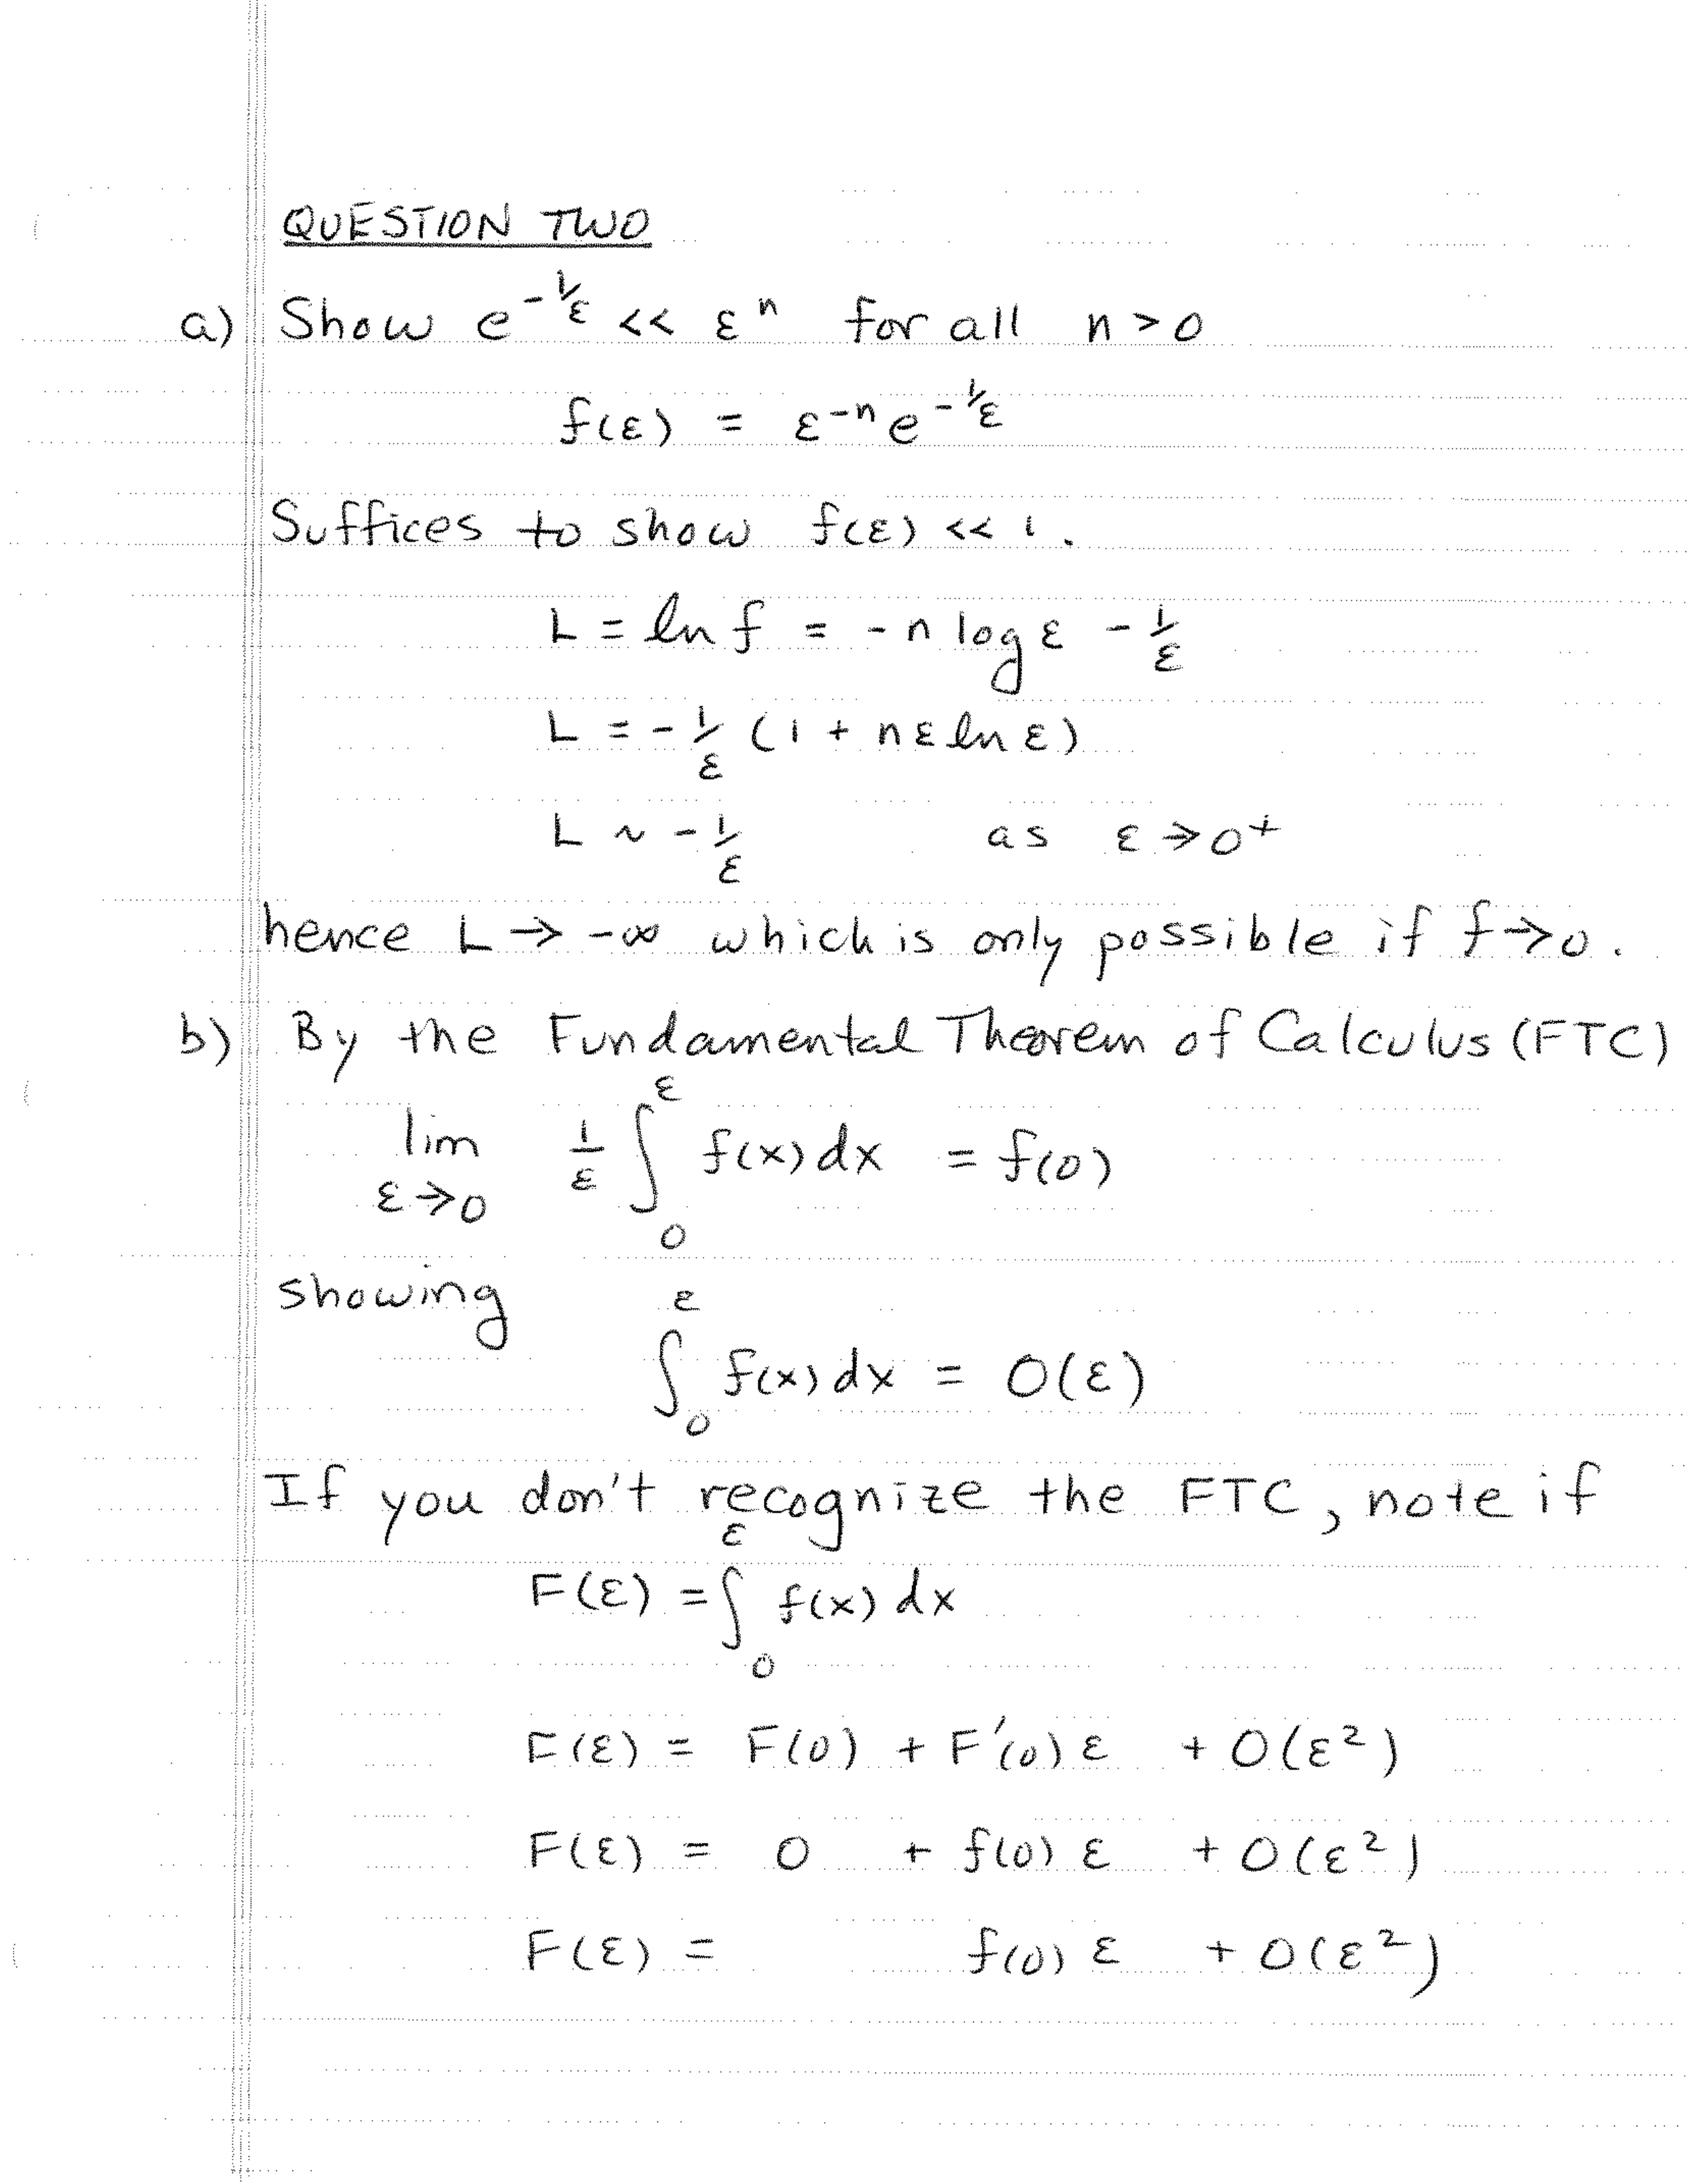 QUESTION TWO
a) Show e^{-1/ε} << ε^n for all n > 0
f(ε) = ε^{-n} e^{-1/ε}
Suffices to show f(ε) << 1.
L = ln f = -n log ε - 1/ε
L = -1/ε (1 + nε ln ε)
L ~ -1/ε as ε → 0^+
hence L → -∞ which is only possible if f → 0.
b) By the Fundamental Theorem of Calculus (FTC)
lim_{ε→0} 1/ε ∫_0^ε f(x) dx = f(0)
showing
∫_0^ε f(x) dx = O(ε)
If you don't recognize the FTC, note if
F(ε) = ∫_0^ε f(x) dx
F(ε) = F(0) + F'(0) ε + O(ε²)
F(ε) = 0 + f(0) ε + O(ε²)
F(ε) = f(0) ε + O(ε²)